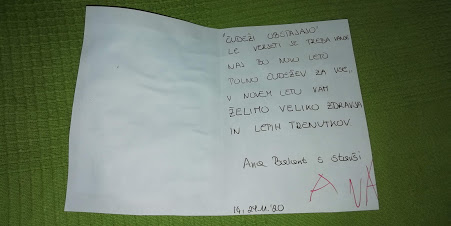 "ČUDEŽI OBSTAJAJO"
LE VERJETI JE TREBA VANJE
NAJ BO NOVO LETO
POLNO ČUDEŽEV ZA VSE,
V NOVEM LETU VAM
ŽELIMO VELIKO ZDRAVJA
IN LEPIH TRENUTKOV.
Ana s starši
ANA